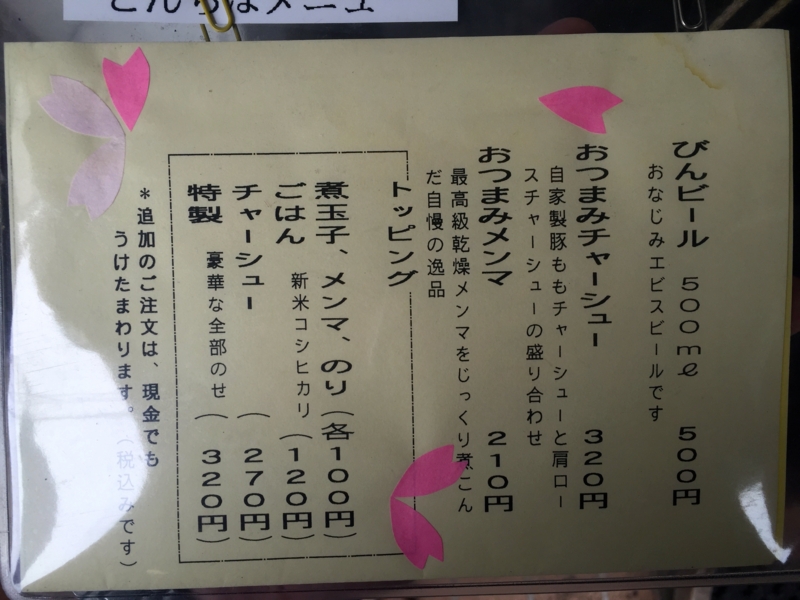 とんちぼメニュー
びんビール　500ml　500円
おなじみエビスビールです
おつまみチャーシュー　320円
自家製豚ももチャーシューと肩ロー
スチャーシューの盛り合わせ
おつまみメンマ　210円
最高級乾燥メンマをじっくり煮こん
だ自慢の逸品
トッピング
煮玉子、メンマ、のり（各100円）
ごはん　新米コシヒカリ（120円）
チャーシュー（270円）
特製　豪華な全部のせ（320円）
＊追加のご注文は、現金でも
うけたまわります。（税込みです）